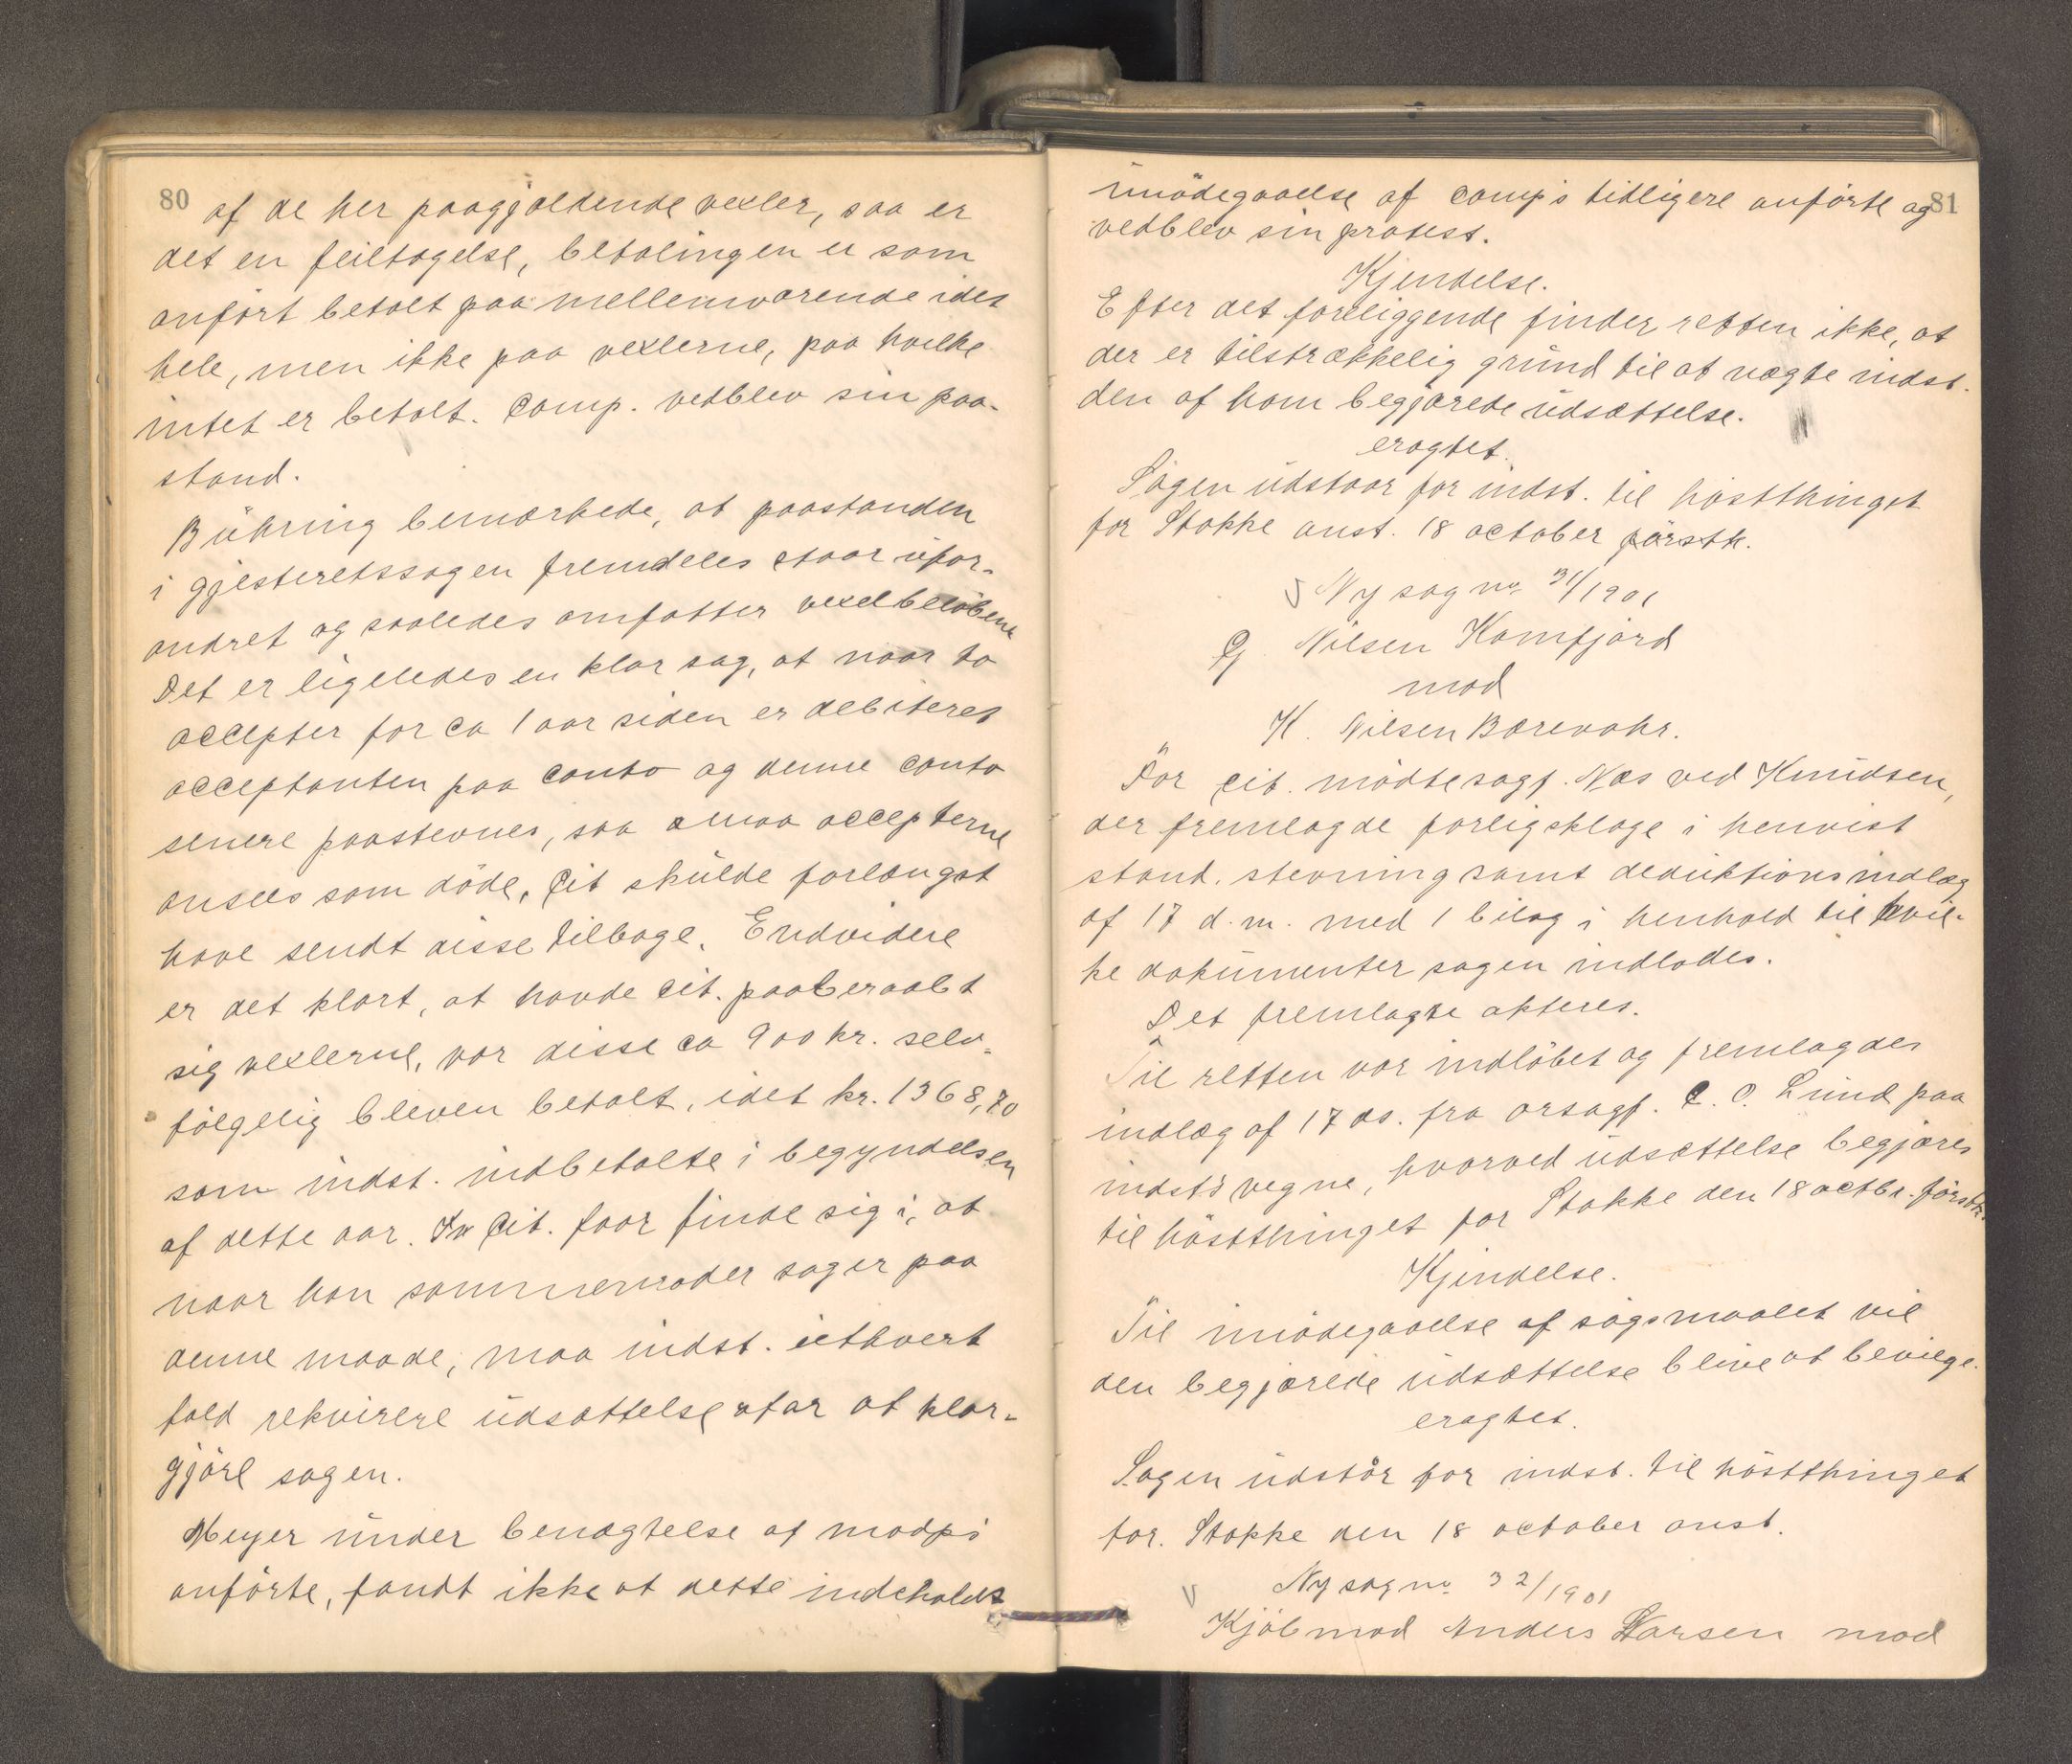 80
af de her paagjældende vexler, saa er
det en feiltagelse, betalingen er som
anført betalt paa mellemværende idet
hele, men ikke paa vexlerne, paa hvilke
intet er betalt. Comp. vedblev sin paa-
stand.
Bühring bemærkede, at paastanden
i gjesteretssagen fremdeles staar ufor-
andret og saaledes omfatter vexelbeløbene
Det er ligeledes en klar sag, at naar to
accepter for ca 1 aar siden er debiteret
acceptanten paa conto og denne conto
senere paastevnes, saa maa accepterne
ansees som døde, Cit skulde forlængst
have sendt disse tilbage. Endvidere
er det klart, at havde Cit. paaberaabt
sig vexlerne, var disse ca 900 kr. selv-
følgelig bleven betalt, idet kr. 1368,70
som indst. indbetalte i begyndelsen
af dette aar. Cit. faar finde sig i, at
naar han sammenroder sager paa
denne maade, maa indst. iethvert
fald rekvirere udsættelse for at klar-
gjøre sagen.
Meyer under benægtelse af modp's
anførte, fandt ikke at dette indeholdt
81
imødegaaelse af comp's tidligere anførte og
vedblev sin protest.
Kjendelse.
Efter det foreliggende finder retten ikke, at
der er tilstrækkelig grund til at nægte indst.
den af ham begjærede udsættelse.
eragtet.
Sagen udstaar for indst. til høstthinget
for Stokke anst. 18 october førstk.
Ny sag no 31/1901
G. Nilsen Kamfjord
mod
H. Nilsen Barevahr.
For cit. mødte sagf. Næs ved Knudsen,
der fremlagde forligsklage i henvist
stand. stevning samt deduktionsindlæg
af 17 d.m. med 1 bilag i henhold til hvil-
ke dokumenter sagen indlodes.
Det fremlagte akteres.
Til retten var indløbet og fremlagdes
indlæg af 17 ds. fra orsagf. C. O. Lund paa
indst's vegne, hvorved udsættelse begjæres
til høstthinget for Stokke den 18 octbr. førstk.
Kjendelse.
Til imødegaaelse af søgsmaalet vil
den begjærede udsættelse blive at bevilge.
eragtet.
Sagen udstår for indst. til høstthinget
for. Stokke den 18 october anst.
Ny sag no 32/1901
Kjøbmad Anders Larsen mod